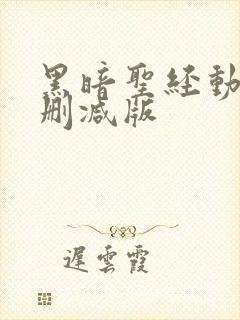 黑暗聖経動
刪減版
遲雲霞